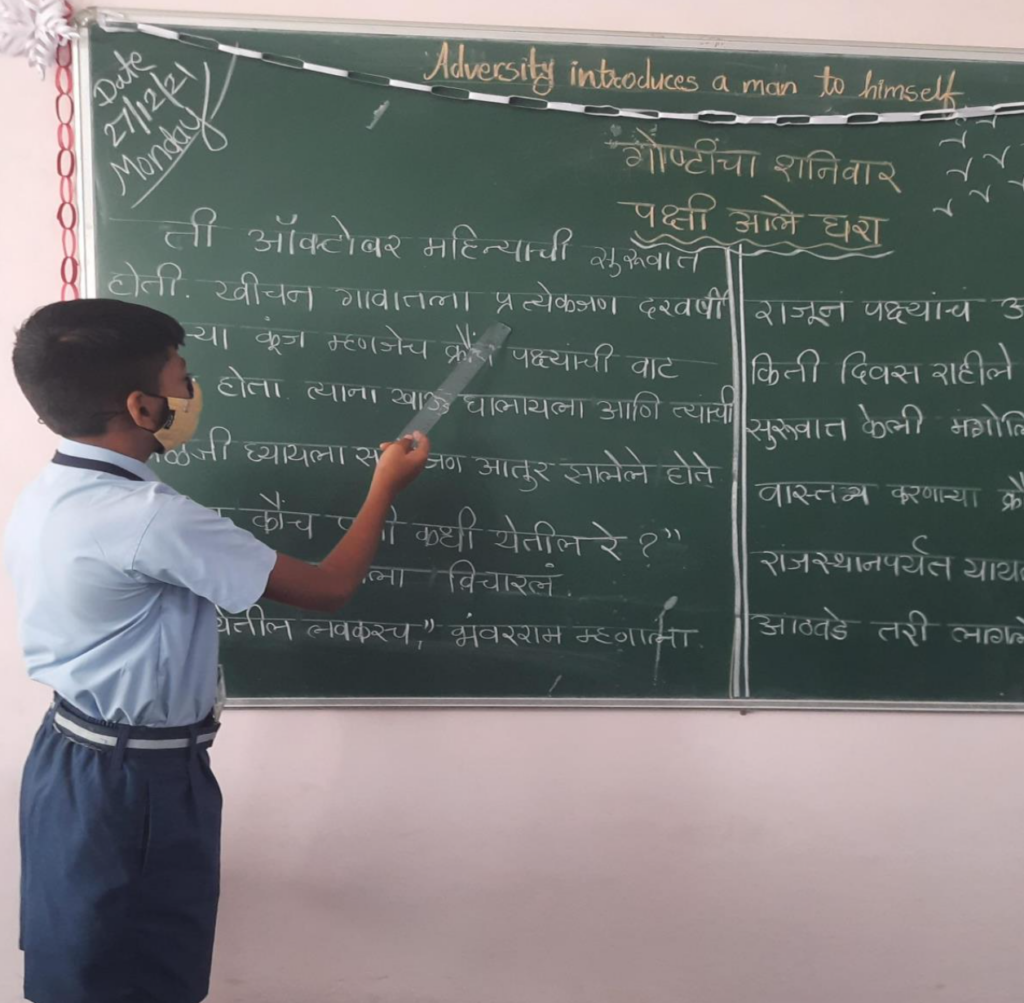 Date
27/12/21
Monday
Adversity introduces a man to himself
गोष्टींचा शनिवार
पक्षी आले घरा
ती ऑक्टोबर महिन्याची सुरूवात
होती. खीचन गावातला प्रत्येकजण दरवर्षी
कूंज म्हणजेच क्रौंच पक्ष्यांची वाट
होता. त्याना खाऊ घालायला आणि त्यांची
घ्यायला आतुर सालेले होते
क्रौंच कधी येतील रे ?”
विचारलं.
येतील लवकरच,” भंवरराम म्हणाला.
राजून पक्ष्यांच
किती दिवस राहीले
सुरूवात केली
वास्तव्य करणाऱ्या
राजस्थानपर्यंत
आठवडे तरी